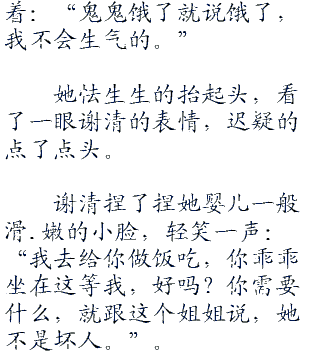 着：“鬼鬼饿了就说饿了，
我不会生气的。”
她怯生生的抬起头，看
了一眼谢清的表情，迟疑的
点了点头。
谢清捏了捏她婴儿一般
滑.嫩的小脸，轻笑一声：
“我去给你做饭吃，你乖乖
坐在这等我，好吗？你需要
什么，就跟这个姐姐说，她
不是坏人。”。